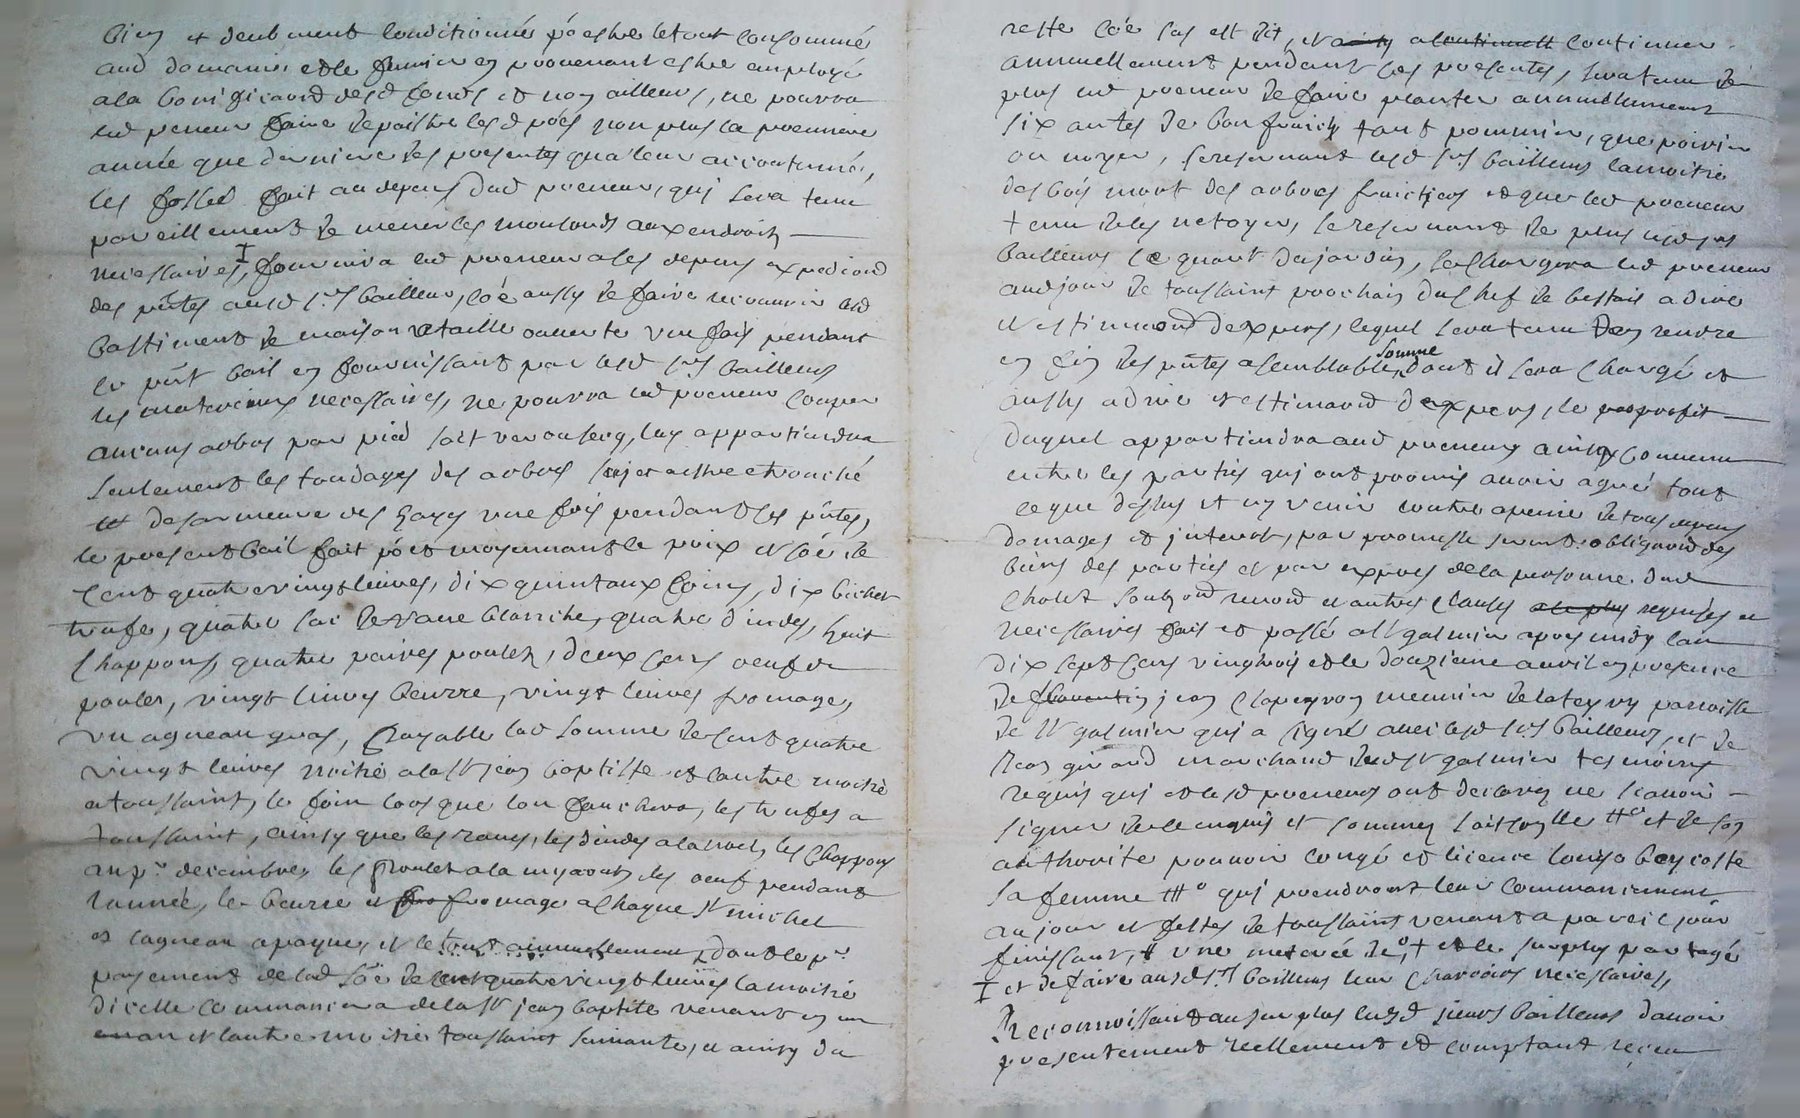 bien et deubment conditionné po estre le tout consommé
aud domaine et le fumier en provenant estre employé
a la bonificaond desd fonds et non ailleurs, ne pourra
led preneur faire depaistre lesd prés non plus la premiere
année que derniere des presentes qua leur accoutumé,
les fossés fait au depens dud preneur, qui sera tenu
pareillement de mener les moutonds aux endroits
necessaires, fournira led preneur a ses depens expediond
des pñtes ausd srs bailleur, coe aussy de faire recouvrir led
bastiment de maison etaille ouverte une fois pendant
le pñt bail en fournissant par lesd srs bailleurs
les matereaux necessaires, ne pourra led preneur couper
aucuns arbres par pied soit verou secq, luy appartiendra
seulement les tondages des arbres sujet a estre etronché
et desarmeure des hayes une fois pendant les pñtes,
le present bail fait po et moyennant le prix et soe de
cent quatre vingt livres, dix quintaux foins, dix bichet
trufe, quatre sac de rave blanche, quatre dindes, huit
chappons, quatre paires poulets, deux cens oeuf de
poules, vingt livres beurre, vingt livres fromage,
un agneau gras, payable lad somme de cent quatre
vingt livres moitié a la st jean baptiste et lautre moitié
a toussaint, le foin lors que lon fauchera, les trufes a
toussaint, ainsy que les raves, les dindes a la noel, les chappons
au pr decembre, les poulets a la my aoust, les oeuf pendant
lannée, le beurre et fromage a chaque st michel
et lagneau a paques, et le tout annuellement dont le pr
payement de lad soe de cent quatre vingt livres la moitié
dicelle commencera de la st jean baptiste venant en un
an et lautre moitié toussaint suivante, et ainsy du
reste coe sus est dit, et a continuer
annuellement pendant les presentes, sera tenu de
plus led preneur de faire planter annuellement
six antes de bon fruich tant pommier, que poirier
ou noyer, se reservant lesd srs bailleurs la moitié
des bois mort des arbres fruictiers et que led preneur
tenu de les netoyer, se reservant de plus lesd srs
bailleurs le quart du jardin, se chargera led preneur
aud jour de toussaint prochain du chef de bestail a dire
et estimaond dexpers, lequel sera tenu den rendre
en fin des pñtes a semblable somme dont il sera chargé et
aussy a dire et estimaond dexpers, le profit
duquel appartiendra aud preneur ainsy convenu
entre les parties qui ont promis avoir agréé tout
ce que dessus et ny venir contre a peine de tous depens
domages et jnterest, par promesse serment obligaond des
biens des parties et par expres de la personne dud
cholet soubzond renond et autres clauses requises et
necessaires fait et passé a st galmier apres midy lan
dix sept cens vingt trois et le douzieme avril en presence
de jean clapeyron meunier de la teyry parroisse
de st galmier qui a signé avec lesd srs bailleurs, et de
jean girard marchand dud st galmier tesmoins
requis qui et lesd preneurs ont declaré ne scavoir
signer de ce enquis et sommés
authorite pouvoir congé et licence
sa femme qui prendront leur commancement
au jour et festes de toussaint venant a pareil jour
finissant, et le surplus partagé
et de faire ausd srs bailleurs leur charrois necessaires,
Reconnoissant au surplus lesd sieurs bailleurs davoir
presentement reellement et comptant reçeu